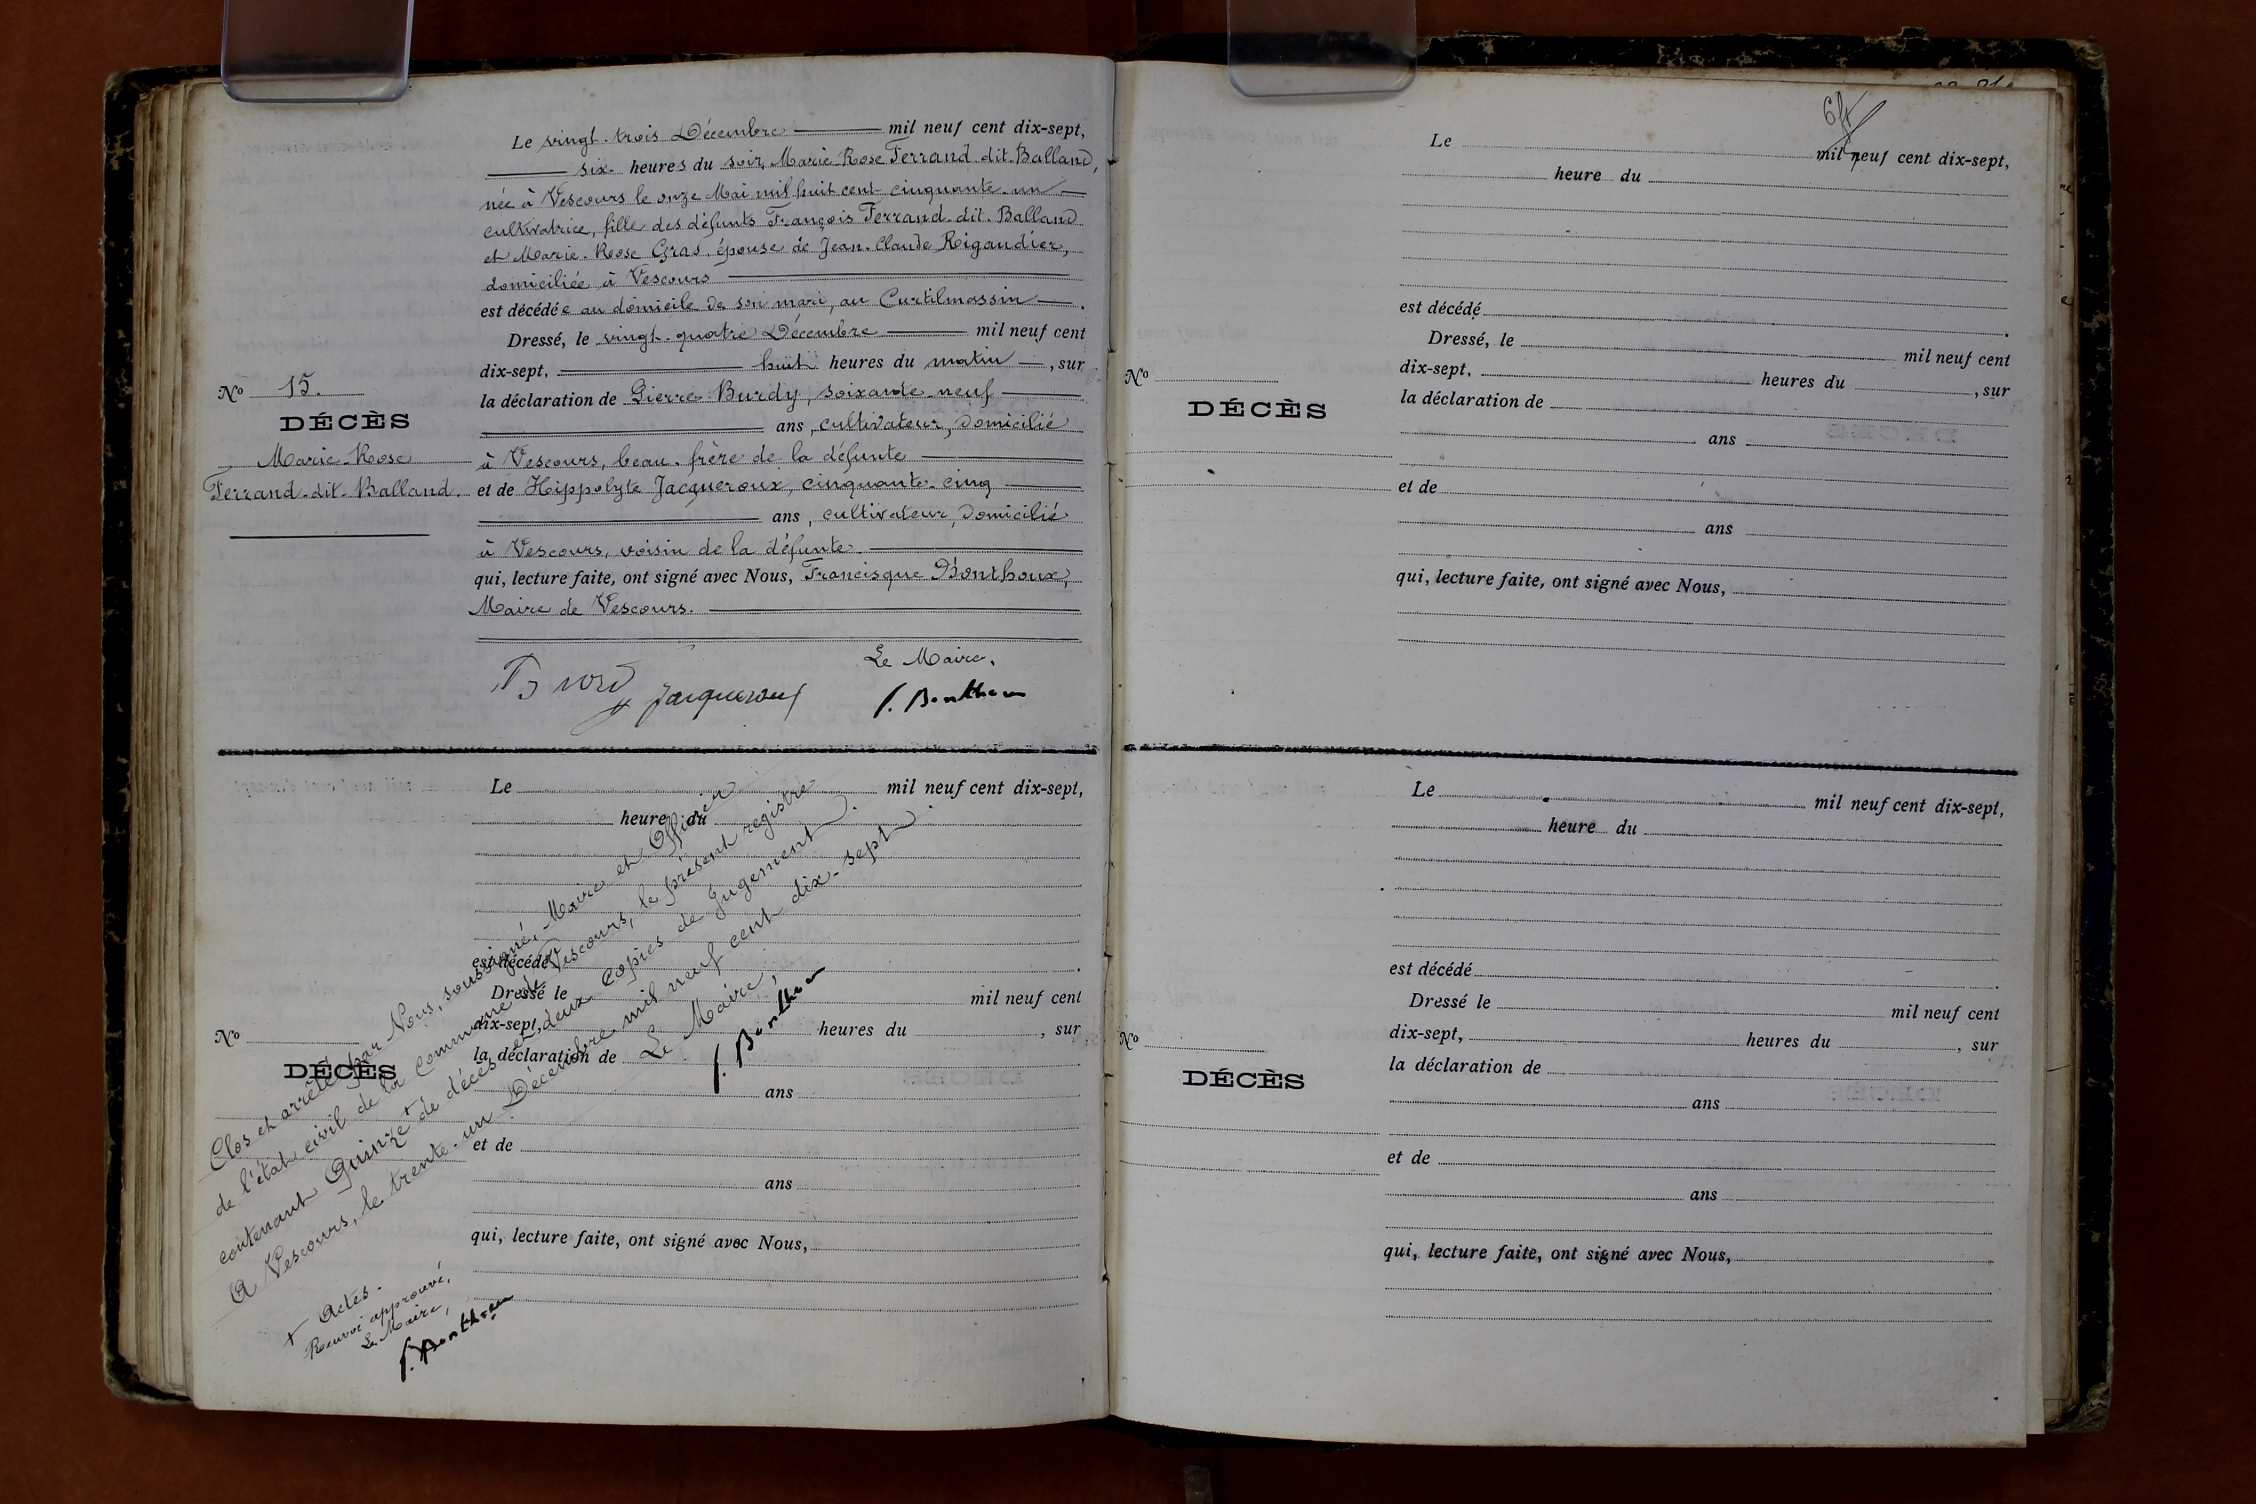 Le vingt-trois Décembre mil neuf cent dix-sept,
six heures du soir, Marie Rose Ferrand dit Balland,
née à Vescours le onze Mai mil huit cent cinquante-un
cultivatrice, fille des défunts François Ferrand-dit-Balland
et Marie-Rose Gras, épouse de Jean-Claude Rigaudier,
domiciliée à Vescours
est décédée au domicile de son mari, au Curtilmassin.
Dressé, le vingt-quatre Décembre mil neuf cent
dix-sept, huit heures du matin, sur
la déclaration de Pierre Burdy, soixante-neuf
ans, cultivateur, domicilié
à Vescours, beau-frère de la défunte
et de Hippolyte Jacqueroux, cinquante-cinq
ans, cultivateur, domicilié
à Vescours, voisin de la défunte
qui, lecture faite, ont signé avec Nous, Francisque Bonthoux,
Maire de Vescours.
No 15.
DÉCÈS
Marie-Rose
Ferrand-dit-Balland.
Le Maire,
Burdy Jacqueroux f. Bonthoux
Le mil neuf cent dix-sept,
heure du
est décédé .
Dressé le mil neuf cent
dix-sept, heures du , sur
la déclaration de
ans
et de
ans
qui, lecture faite, ont signé avec Nous,
No
DÉCÈS
Clos et arrêté par Nous, soussigné, Maire et Officier
de l'état civil de la commune de Vescours, le présent registre
contenant Quinze + de décès et deux copies de Jugement.
A Vescours, le trente-un Décembre mil neuf cent dix-sept.
Le Maire,
f. Bonthoux
+ Actes.
Renvoi approuvé,
Le Maire,
f. Bonthoux
Le mil neuf cent dix-sept,
heure du
est décédé .
Dressé, le mil neuf cent
dix-sept, heures du , sur
la déclaration de
ans
et de
ans
qui, lecture faite, ont signé avec Nous,
No
DÉCÈS
Le mil neuf cent dix-sept,
heure du
est décédé .
Dressé le mil neuf cent
dix-sept, heures du , sur
la déclaration de
ans
et de
ans
qui, lecture faite, ont signé avec Nous,
No
DÉCÈS